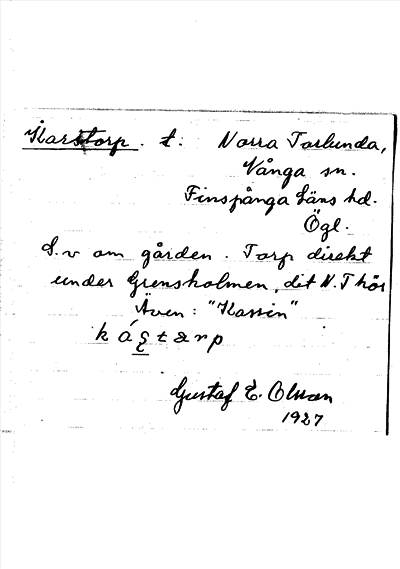 Karstorp. t: Norra Torlunda,
Vånga sn.
Finspånga Läns hd.
Ögl.
S.v om gården. Torp direkt
under Grensholmen, dit N.T hör
Även: "Kassin"
Gustaf E. Olsson
1927